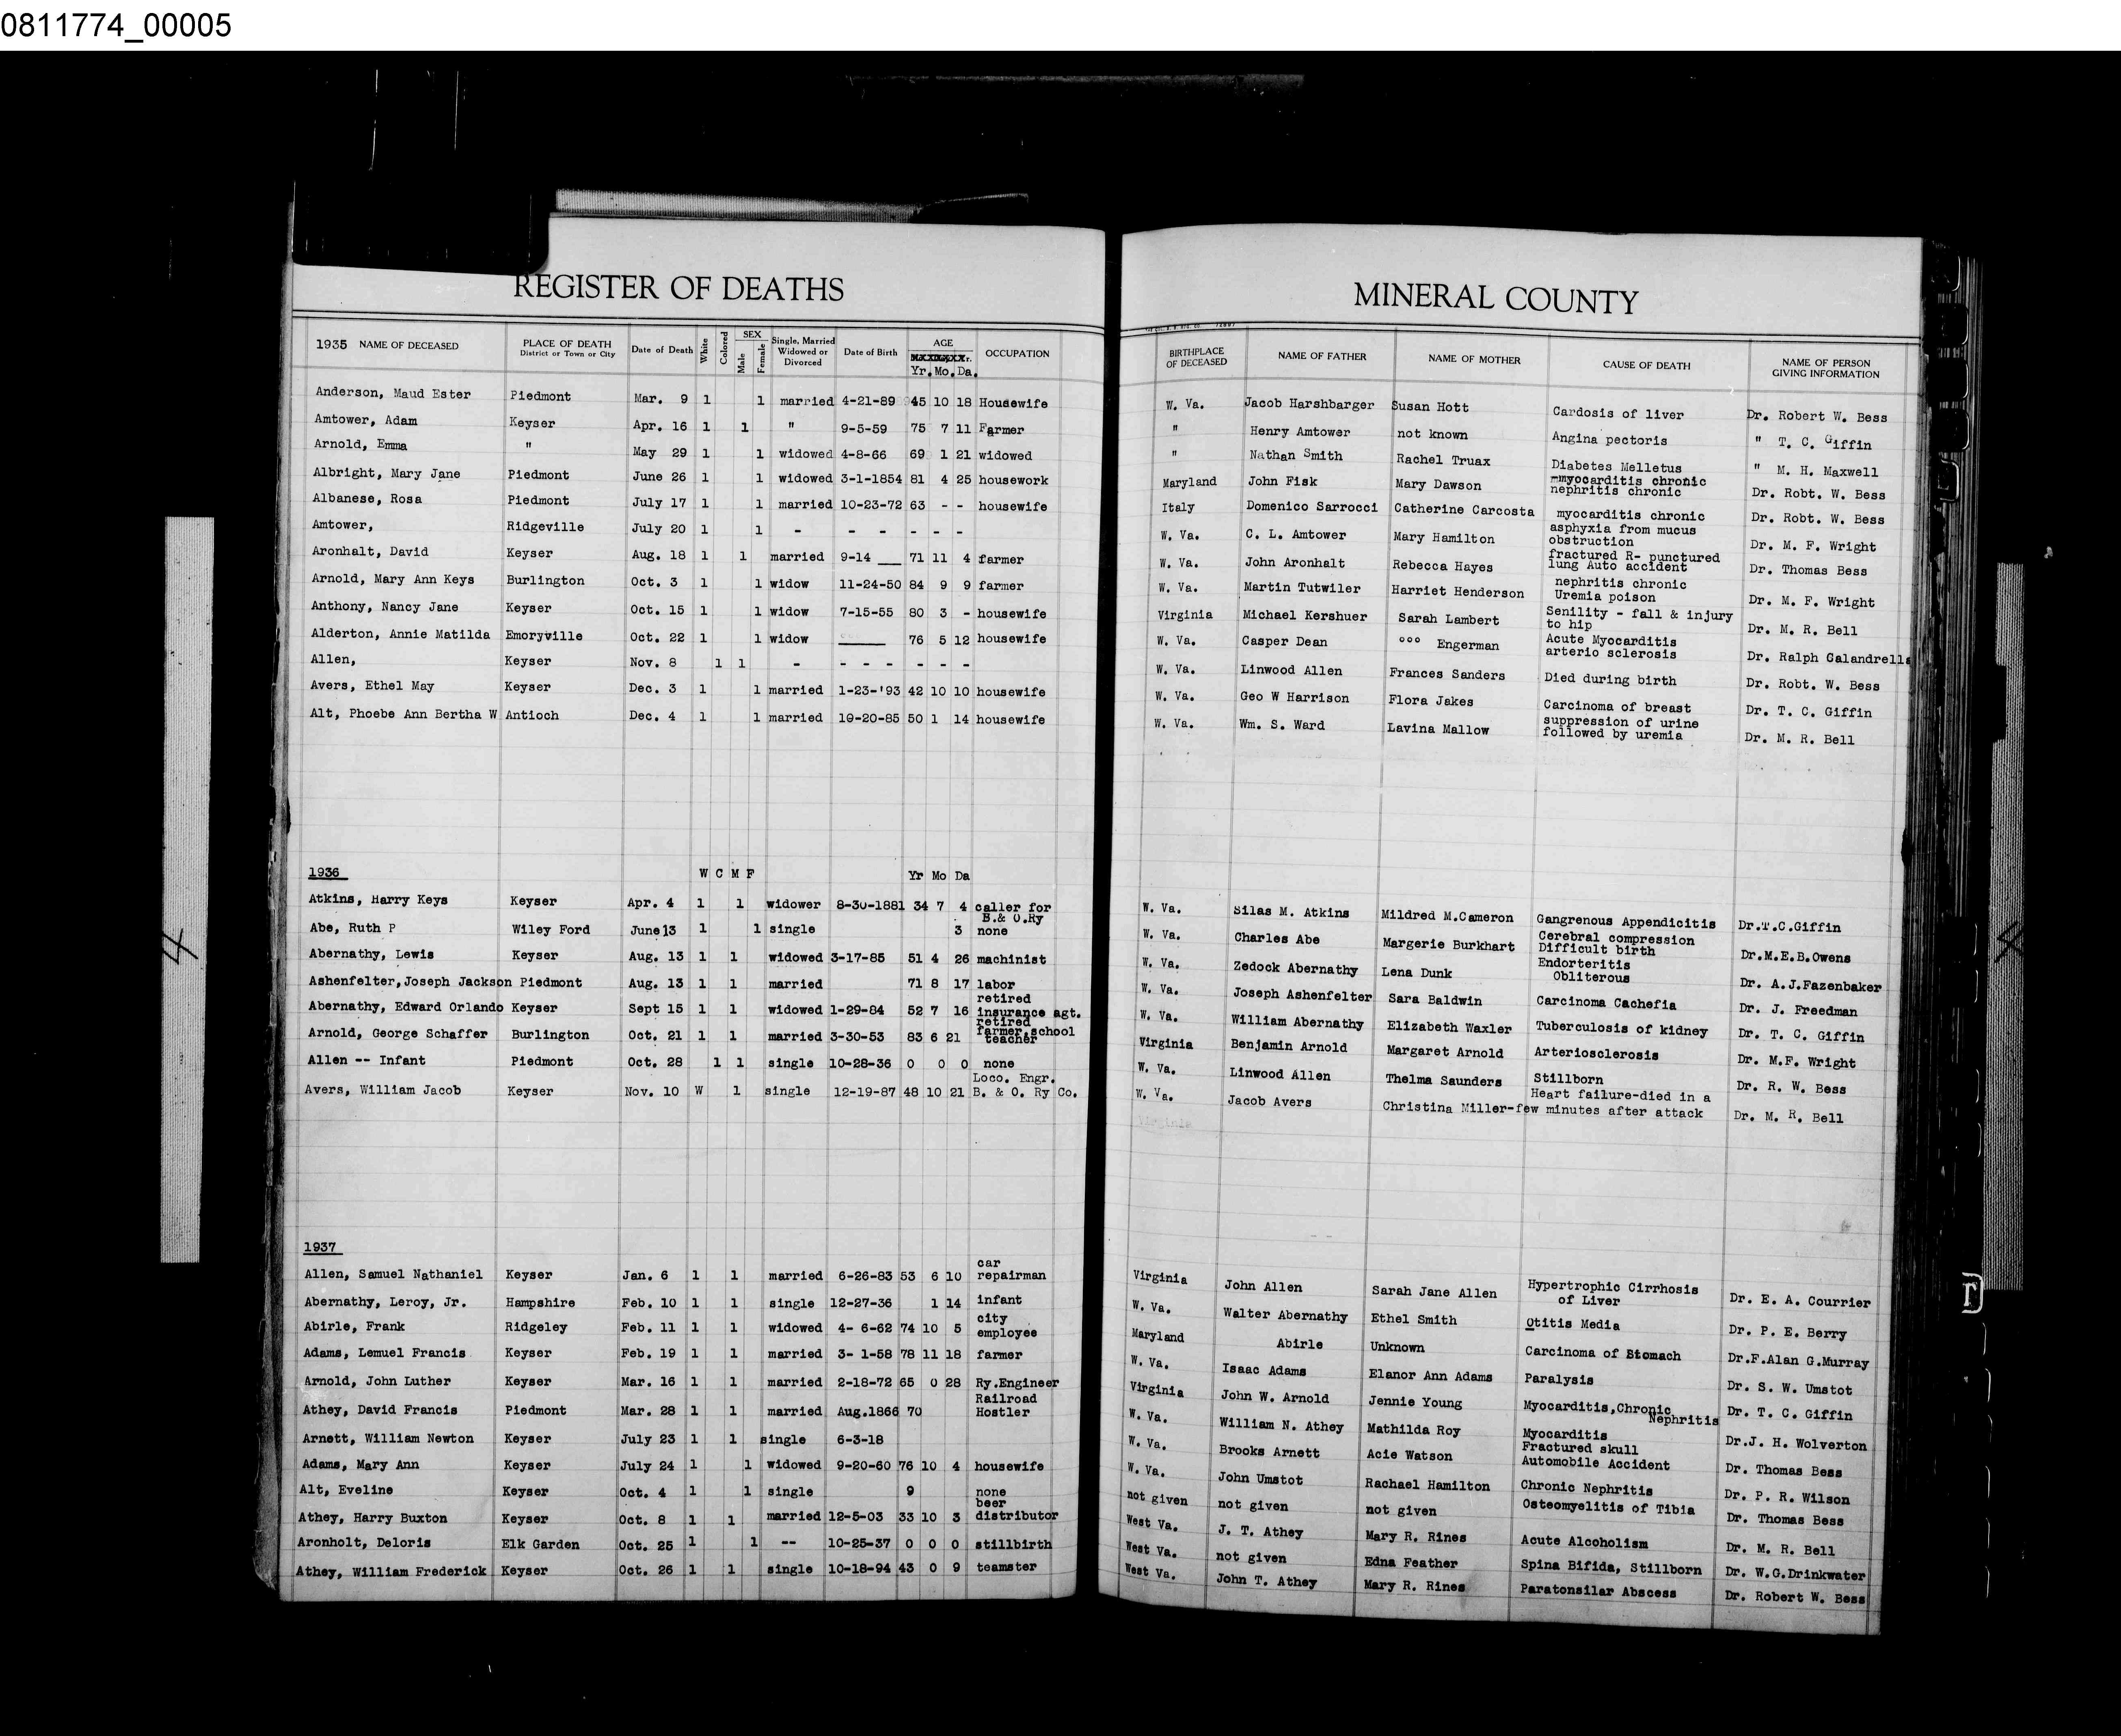 0811774_00005
REGISTER OF DEATHS
1935 NAME OF DECEASED PLACE OF DEATH District or Town or City Date of Death White Colored SEX Male Female Single, Married Widowed or Divorced Date of Birth AGE Yr. Mo. Da. OCCUPATION
Anderson, Maud Ester Piedmont Mar. 9 1 1 married 4-21-89 45 10 18 Housewife
Amtower, Adam Keyser Apr. 16 1 1 " 9-5-59 75 7 11 Farmer
Arnold, Emma " May 29 1 1 widowed 4-8-66 69 1 21 widowed
Albright, Mary Jane Piedmont June 26 1 1 widowed 3-1-1854 81 4 25 housework
Albanese, Rosa Piedmont July 17 1 1 married 10-23-72 63 - - housewife
Amtower, Ridgeville July 20 1 1 - - - - - - -
Aronhalt, David Keyser Aug. 18 1 1 married 9-14 ___ 71 11 4 farmer
Arnold, Mary Ann Keys Burlington Oct. 3 1 1 widow 11-24-50 84 9 9 farmer
Anthony, Nancy Jane Keyser Oct. 15 1 1 widow 7-15-55 80 3 - housewife
Alderton, Annie Matilda Emoryville Oct. 22 1 1 widow ______ 76 5 12 housewife
Allen, Keyser Nov. 8 1 1 - - - - - - -
Avers, Ethel May Keyser Dec. 3 1 1 married 1-23-'93 42 10 10 housewife
Alt, Phoebe Ann Bertha W Antioch Dec. 4 1 1 married 10-20-85 50 1 14 housewife
1936 W C M F Yr Mo Da
Atkins, Harry Keys Keyser Apr. 4 1 1 widower 8-30-1881 34 7 4 caller for
B.& O.Ry
Abe, Ruth P Wiley Ford June 13 1 1 single 3 none
Abernathy, Lewis Keyser Aug. 13 1 1 widowed 3-17-85 51 4 26 machinist
Ashenfelter,Joseph Jackson Piedmont Aug. 13 1 1 married 71 8 17 labor
retired
Abernathy, Edward Orlando Keyser Sept 15 1 1 widowed 1-29-84 52 7 16 insurance agt.
retired
Arnold, George Schaffer Burlington Oct. 21 1 1 married 3-30-53 83 6 21 farmer,school
teacher
Allen -- Infant Piedmont Oct. 28 1 1 single 10-28-36 0 0 0 none
Loco. Engr.
Avers, William Jacob Keyser Nov. 10 W 1 single 12-19-87 48 10 21 B. & O. Ry Co.
1937
car
Allen, Samuel Nathaniel Keyser Jan. 6 1 1 married 6-26-83 53 6 10 repairman
Abernathy, Leroy, Jr. Hampshire Feb. 10 1 1 single 12-27-36 1 14 infant
city
Abirle, Frank Ridgeley Feb. 11 1 1 widowed 4- 6-62 74 10 5 employee
Adams, Lemuel Francis Keyser Feb. 19 1 1 married 3- 1-58 78 11 18 farmer
Arnold, John Luther Keyser Mar. 16 1 1 married 2-18-72 65 0 28 Ry.Engineer
Railroad
Athey, David Francis Piedmont Mar. 28 1 1 married Aug.1866 70 Hostler
Arnett, William Newton Keyser July 23 1 1 single 6-3-18
Adams, Mary Ann Keyser July 24 1 1 widowed 9-20-60 76 10 4 housewife
Alt, Eveline Keyser Oct. 4 1 1 single 9 none
beer
Athey, Harry Buxton Keyser Oct. 8 1 1 married 12-5-03 33 10 3 distributor
Aronholt, Deloris Elk Garden Oct. 25 1 1 -- 10-25-37 0 0 0 stillbirth
Athey, William Frederick Keyser Oct. 26 1 1 single 10-18-94 43 0 9 teamster
MINERAL COUNTY
BIRTHPLACE OF DECEASED NAME OF FATHER NAME OF MOTHER CAUSE OF DEATH NAME OF PERSON GIVING INFORMATION
W. Va. Jacob Harshbarger Susan Hott Cardosis of liver Dr. Robert W. Bess
" Henry Amtower not known Angina pectoris " T. C. Giffin
" Nathan Smith Rachel Truax Diabetes Melletus " M. H. Maxwell
mmyocarditis chronic
Maryland John Fisk Mary Dawson nephritis chronic Dr. Robt. W. Bess
Italy Domenico Sarrocci Catherine Carcosta myocarditis chronic Dr. Robt. W. Bess
asphyxia from mucus
W. Va. C. L. Amtower Mary Hamilton obstruction Dr. M. F. Wright
fractured R- punctured
W. Va. John Aronhalt Rebecca Hayes lung Auto accident Dr. Thomas Bess
nephritis chronic
W. Va. Martin Tutwiler Harriet Henderson Uremia poison Dr. M. F. Wright
Senility - fall & injury
Virginia Michael Kershuer Sarah Lambert to hip Dr. M. R. Bell
Acute Myocarditis
W. Va. Casper Dean °°° Engerman arterio sclerosis Dr. Ralph Calandrella
W. Va. Linwood Allen Frances Sanders Died during birth Dr. Robt. W. Bess
W. Va. Geo W Harrison Flora Jakes Carcinoma of breast Dr. T. C. Giffin
suppression of urine
W. Va. Wm. S. Ward Lavina Mallow followed by uremia Dr. M. R. Bell
W. Va. Silas M. Atkins Mildred M.Cameron Gangrenous Appendicitis Dr.T.C.Giffin
Cerebral compression
W. Va. Charles Abe Margerie Burkhart Difficult birth Dr.M.E.B.Owens
Endorteritis
W. Va. Zedock Abernathy Lena Dunk Obliterous Dr. A.J.Fazenbaker
W. Va. Joseph Ashenfelter Sara Baldwin Carcinoma Cachefia Dr. J. Freedman
W. Va. William Abernathy Elizabeth Waxler Tuberculosis of kidney Dr. T. C. Giffin
Virginia Benjamin Arnold Margaret Arnold Arteriosclerosis Dr. M.F. Wright
W. Va. Linwood Allen Thelma Saunders Stillborn Dr. R. W. Bess
Heart failure-died in a
W. Va. Jacob Avers Christina Miller-few minutes after attack Dr. M. R. Bell
Virginia
Virginia John Allen Sarah Jane Allen Hypertrophic Cirrhosis
of Liver Dr. E. A. Courrier
W. Va. Walter Abernathy Ethel Smith Otitis Media Dr. P. E. Berry
Maryland Abirle Unknown Carcinoma of Stomach Dr.F.Alan G.Murray
W. Va. Isaac Adams Elanor Ann Adams Paralysis Dr. S. W. Umstot
Virginia John W. Arnold Jennie Young Myocarditis,Chronic Dr. T. C. Giffin
Nephritis
W. Va. William N. Athey Mathilda Roy Myocarditis Dr.J. H. Wolverton
Fractured skull
W. Va. Brooks Arnett Acie Watson Automobile Accident Dr. Thomas Bess
W. Va. John Umstot Rachael Hamilton Chronic Nephritis Dr. P. R. Wilson
not given not given not given Osteomyelitis of Tibia Dr. Thomas Bess
West Va. J. T. Athey Mary R. Rines Acute Alcoholism Dr. M. R. Bell
West Va. not given Edna Feather Spina Bifida, Stillborn Dr. W.G.Drinkwater
West Va. John T. Athey Mary R. Rines Paratonsilar Abscess Dr. Robert W. Bess